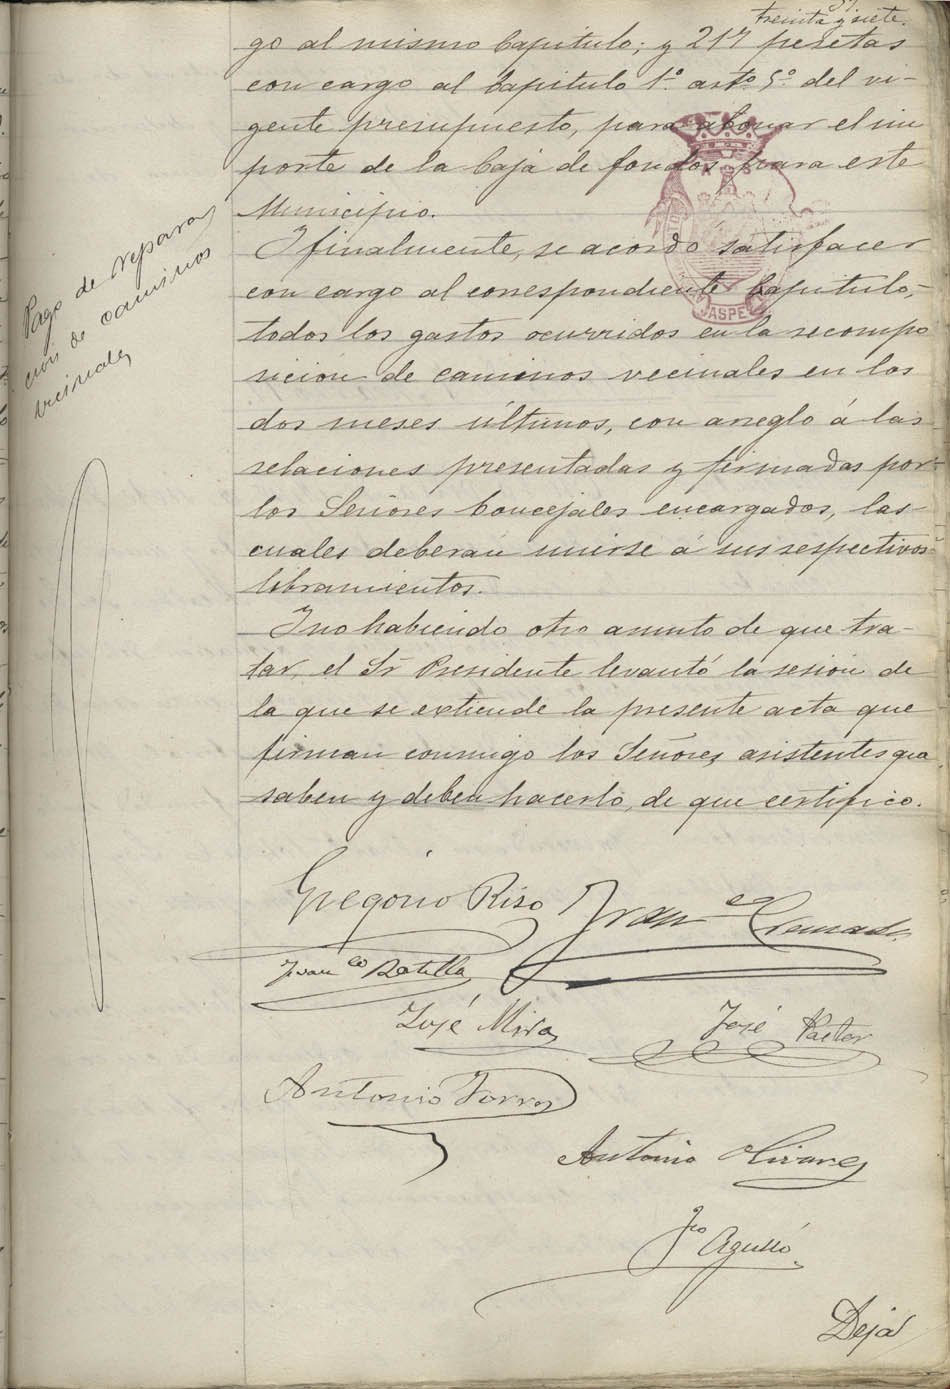 37.
treinta y siete.
go al mismo Capitulo; y 217 pesetas
con cargo al Capitulo 1º artº 5º del vi-
gente presupuesto, para abonar el im
porte de la Caja de fondos para este
Municipio.
Pago de repara
cion de caminos
vecinales
Y finalmente, se acordó satisfacer
con cargo al correspondiente Capitulo,
todos los gastos ocurridos en la recompo
sición de caminos vecinales en los
dos meses últimos, con arreglo á las
relaciones presentadas y firmadas por
los Señores Concejales encargados, las
cuales deberán unirse á sus respectivos
libramientos.
Y no habiendo otro asunto de que tra-
tar, el Sr Presidente levantó la sesión de
la que se extiende la presente acta que
firman conmigo los Señores asistentes que
saben y deben hacerlo, de que certifico.
JASPE
Gregorio Rizo Franco Cremades
Franco Botella
José Mira José Pastor
Antonio Torres
Antonio Olivares
Fco Agulló
Dejá